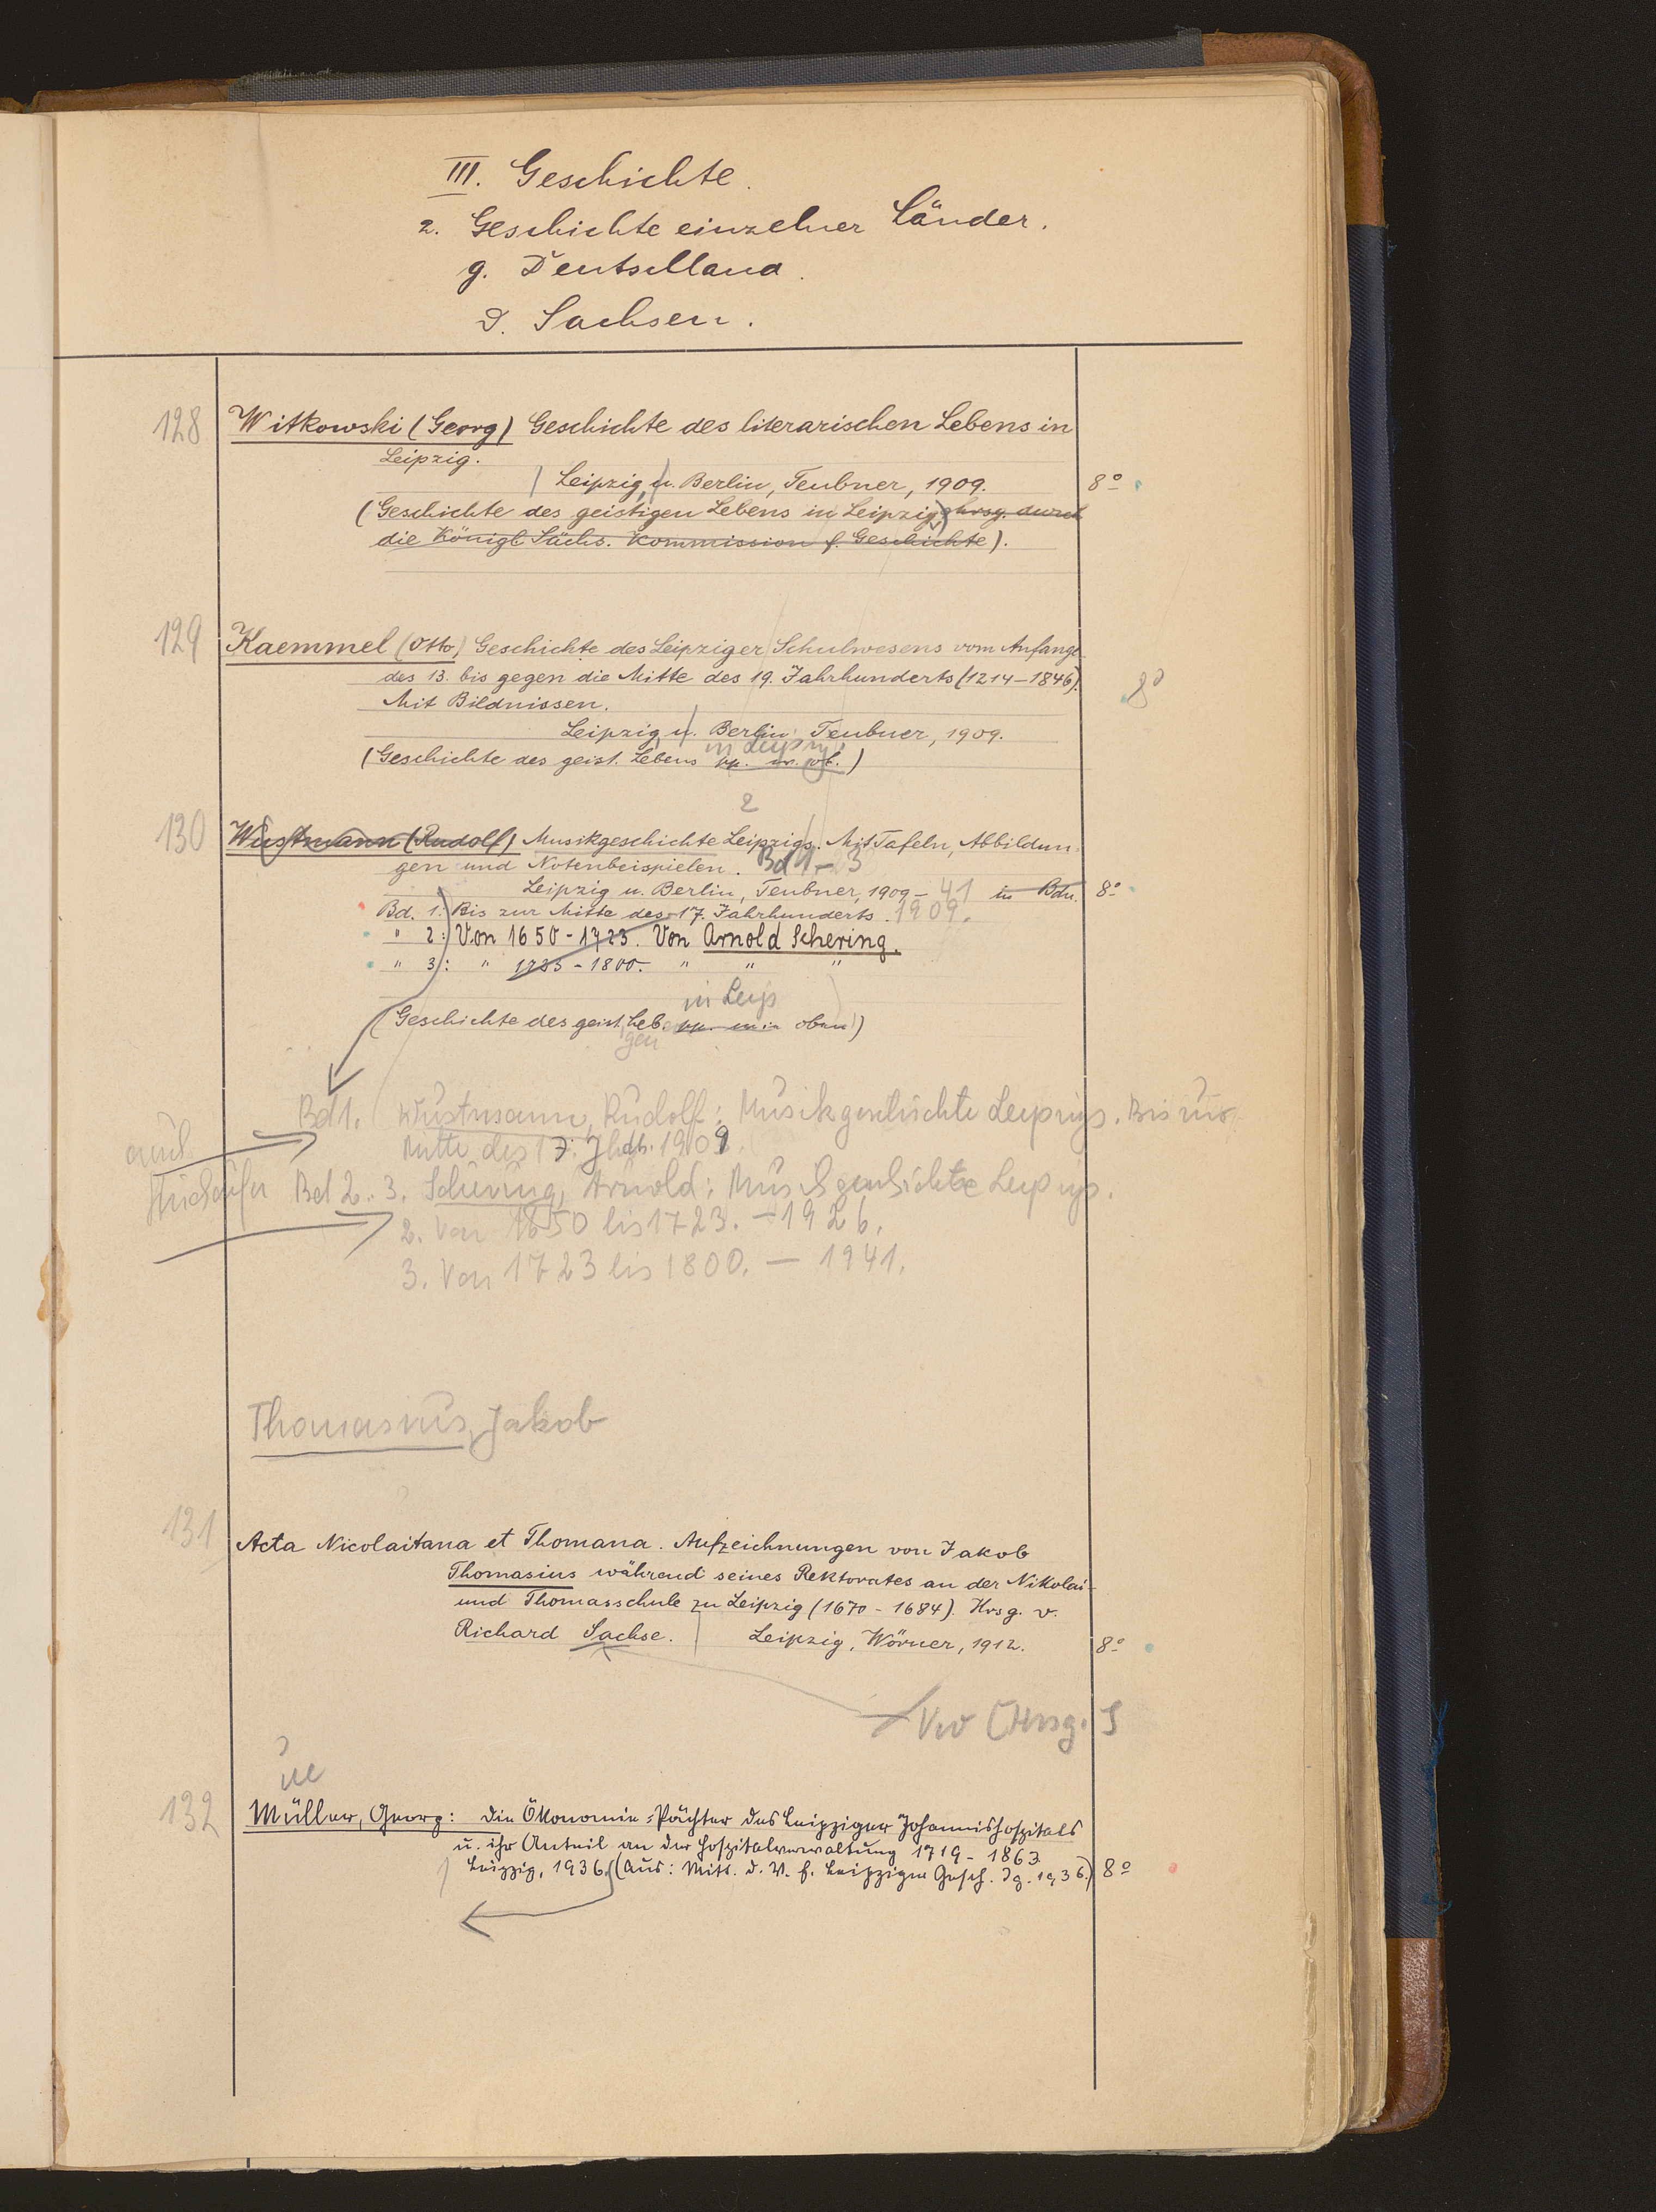 III. Geschichte.
2. Geschichte einzelner Länder.
g. Deutschland.
δ. Sachsen.
128 Witkowski (Georg) Geschichte des literarischen Lebens in
Leipzig.
Leipzig u. Berlin, Teubner, 1909. 8°
(Geschichte des geistigen Lebens in Leipzig, hrsg. durch
die Königl. Sächs. Kommission f. Geschichte).
129 Kaemmel (Otto) Geschichte des Leipziger Schulwesens vom Anfange
des 13. bis gegen die Mitte des 19. Jahrhunderts (1214-1846). 8°
Mit Bildnissen.
Leipzig u. Berlin Teubner, 1909.
in Leipzig
(Geschichte des geist. Lebens pp. w. ob.)
2
130 Wustmann (Rudolf) Musikgeschichte Leipzigs. Mit Tafeln, Abbildun-
gen und Notenbeispielen. Bd 1-3
Leipzig u. Berlin, Teubner, 1909-41 in Bdn. 8°
Bd. 1: Bis zur Mitte des 17. Jahrhunderts. 1909.
" 2: Von 1650-1723. Von Arnold Schering.
" 3: " 1723-1800. " " "
in Leip
(Geschichte des geist. Leb. pp. wie oben)
gen
Bd 1. Wustmann, Rudolf: Musikgeschichte Leipzigs. Bis zur
auch Mitte des 17. Jhdts. 1909.
Bd 2. 3. Schering, Arnold: Musikgeschichte Leipzigs.
2. Von 1650 bis 1723. - 1926.
3. Von 1723 bis 1800. - 1941.
Thomasius, Jakob
131 Acta Nicolaitana et Thomana. Aufzeichnungen von Jakob
Thomasius während seines Rektorates an der Nikolai-
und Thomasschule zu Leipzig (1670-1684). Hrsg. v.
Richard Sachse. Leipzig, Wörner, 1912. 8°
Vw [Hrsg.]
ue
132 Müller, Georg: Die Ökonomie-Pächter des Leipziger Johannishospitals
u. ihr Anteil an der Hospitalverwaltung 1719-1863
Leipzig, 1936. (Aus: Mitt. d. V. f. Leipziger Gesch. Jg. 1936.) 8°